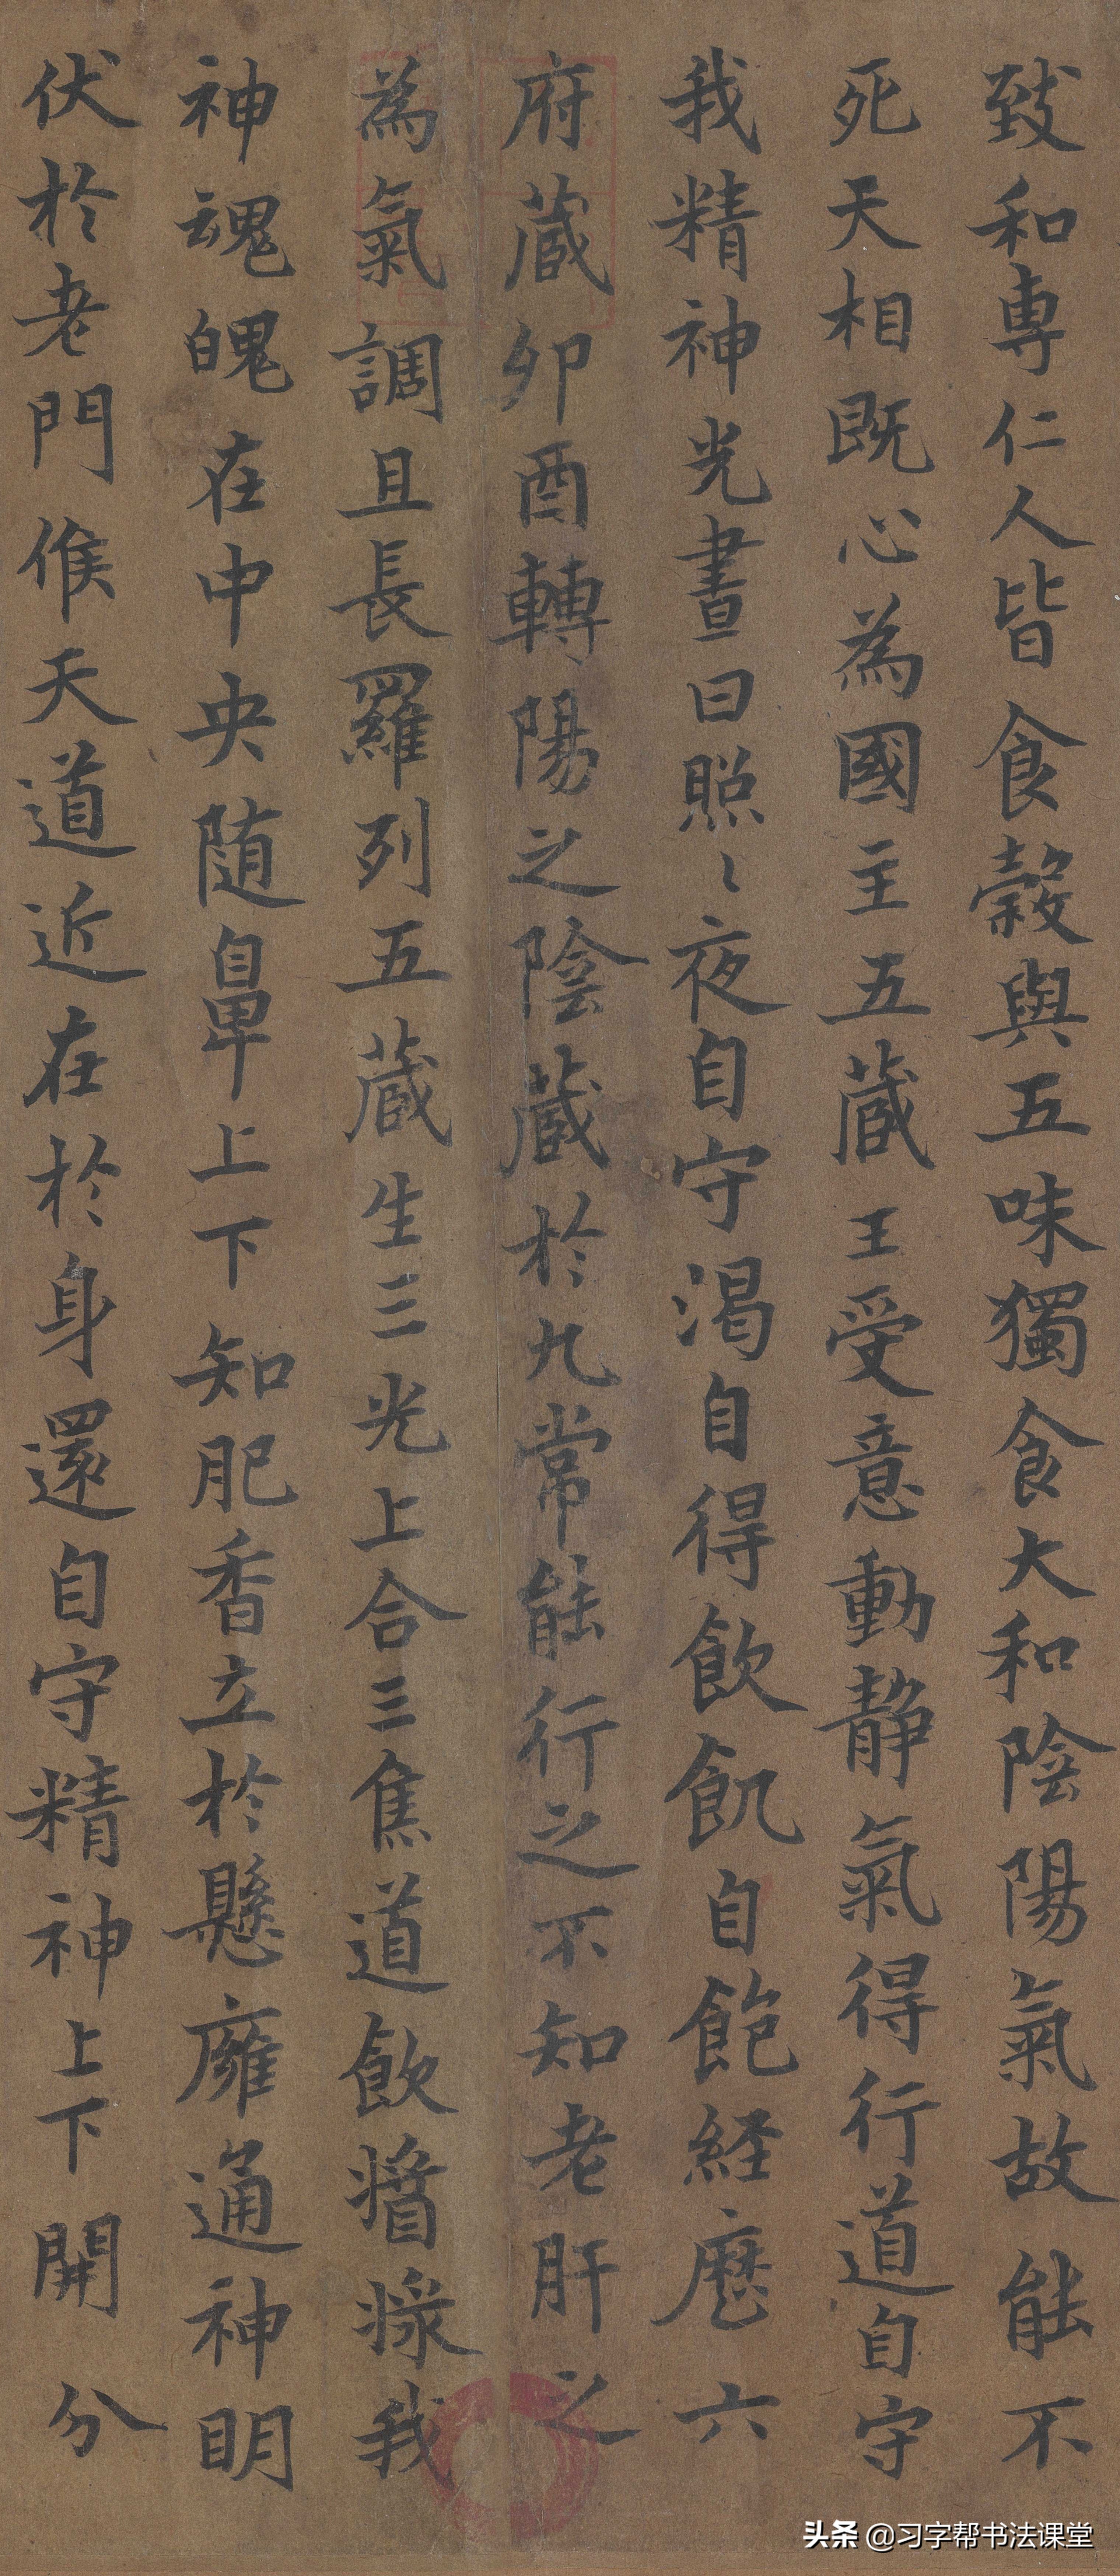 致和専仁人皆食糓與五味獨食大和陰陽氣故能不
死天相既心為國主五蔵王受意動静氣得行道自守
我精神光晝日照〻夜自守渴自得飲飢自飽経歷六
府蔵卯酉轉陽之陰蔵於九常能行之不知老肝之
為氣調且長羅列五蔵生三光上合三焦道飲漿我
神魂魄在中央随鼻上下知肥香立於懸廱通神明
伏於老門候天道近在於身還自守精神上下開分
头条 @习字帮书法课堂